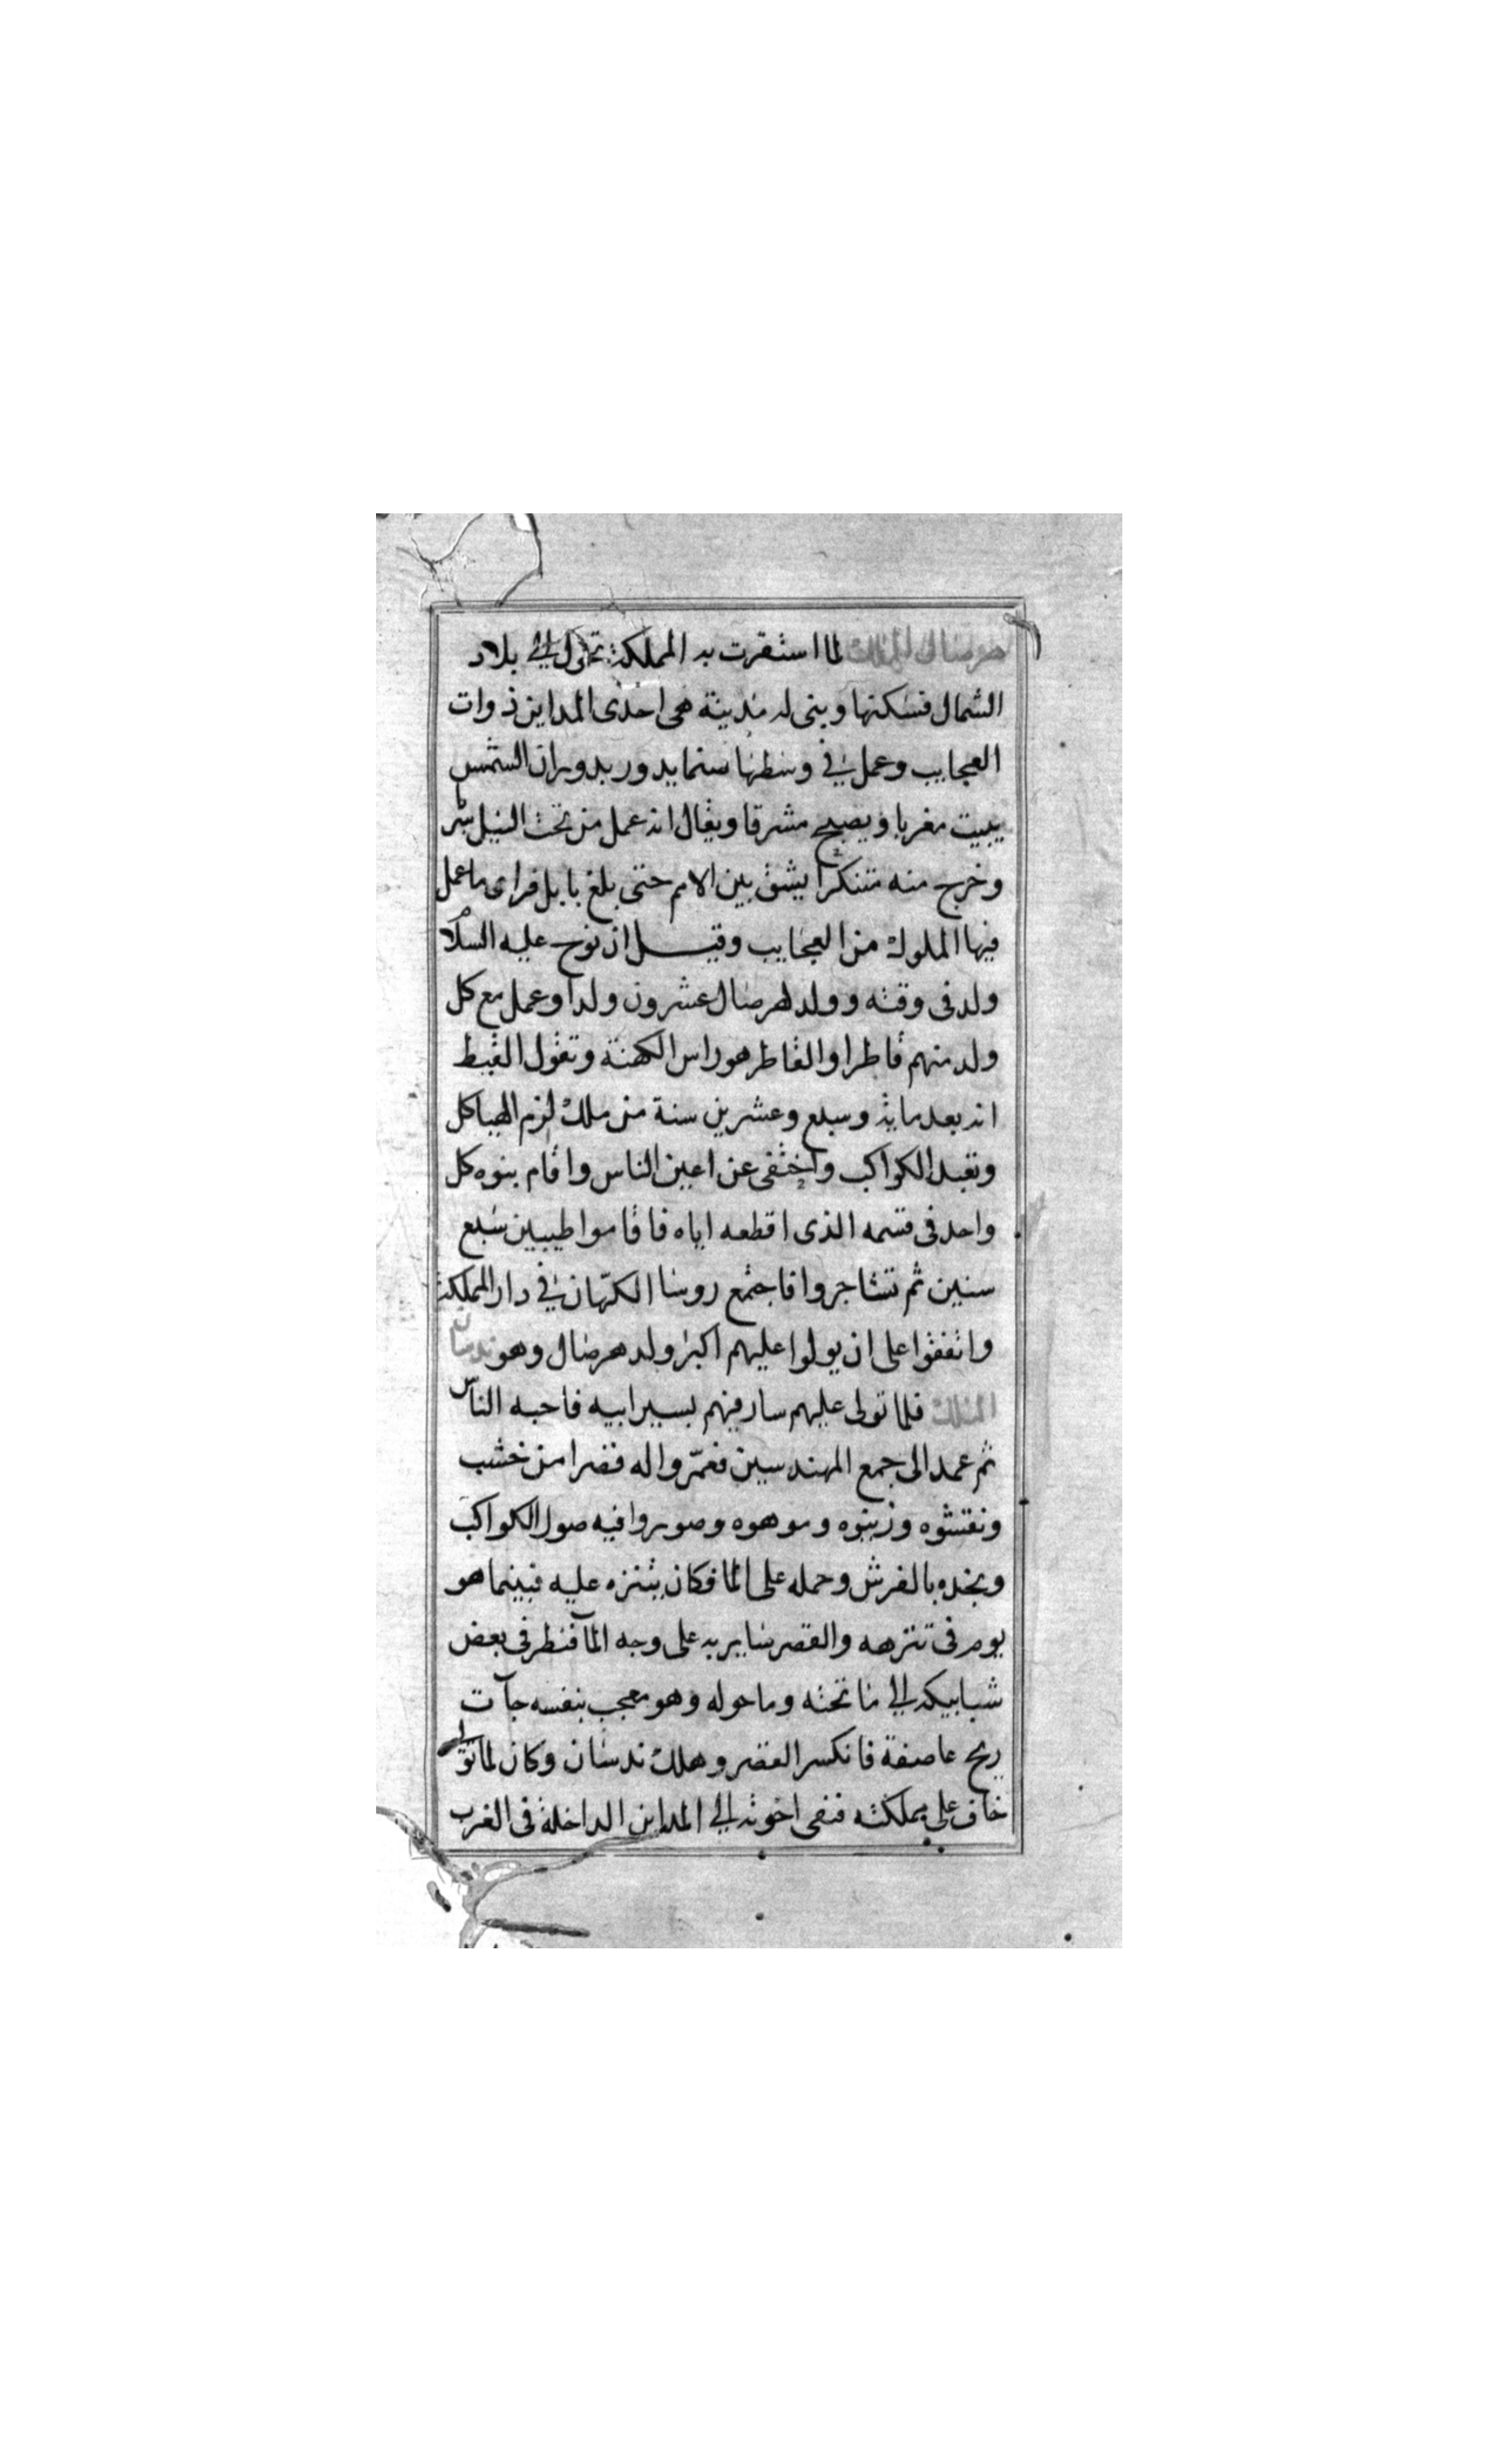 هرصال الملك لما استقرت به المملكة تحول الى بلاد
الشمال فسكنها وبنى له مدينة هى احدى المداين ذوات
العجايب وعمل في وسطها صنما يدور بدوران الشمس
يبيت مغربا ويصبح مشرقا ويقال انه عمل من تحت النيل سربا
وخرج منه متنكرا يشق بين الامم حتى بلغ بابل فراى ما عمل
فيها الملوك من العجايب وقيل ان نوح عليه السلام
ولد فى وقته وولد لهرصال عشرون ولدا وعمل مع كل
ولد منهم قاطرا والقاطر هو راس الكهنة وتقول القبط
انه بعد ماية وسبع وعشرين سنة من ملك لزم الهياكل
وتعبد الكواكب واختفى عن اعين الناس واقام بنوه كل
واحد فى قسمه الذى اقطعه اياه فاقاموا طيبين سبع
سنين ثم تشاجروا فاجتمع روسا الكهان في دار المملكة
واتفقوا على ان يولوا عليهم اكبر ولد هرصال وهو ندسان
الملك فلما تولى عليهم سار فيهم بسير ابيه فاحبه الناس
ثم عمد الى جمع المهندسين فعمّروا له قصرا من خشب
ونقشوه وزينوه وموهوه وصوروا فيه صور الكواكب
ونجده بالفرش وحمله على الما فكان يتنزه عليه فبينما هو
يوم فى تنزهه والقصر ساير به على وجه المآ فنظر فى بعض
شبابيكه الي ما تحته وما حوله وهو معجب بنفسه جآت
ريح عاصفة فانكسر القصر وهلك ندسان وكان لما تولى
خاف على مملكته فنفى اخوته الي المداين الداخلة فى الغرب